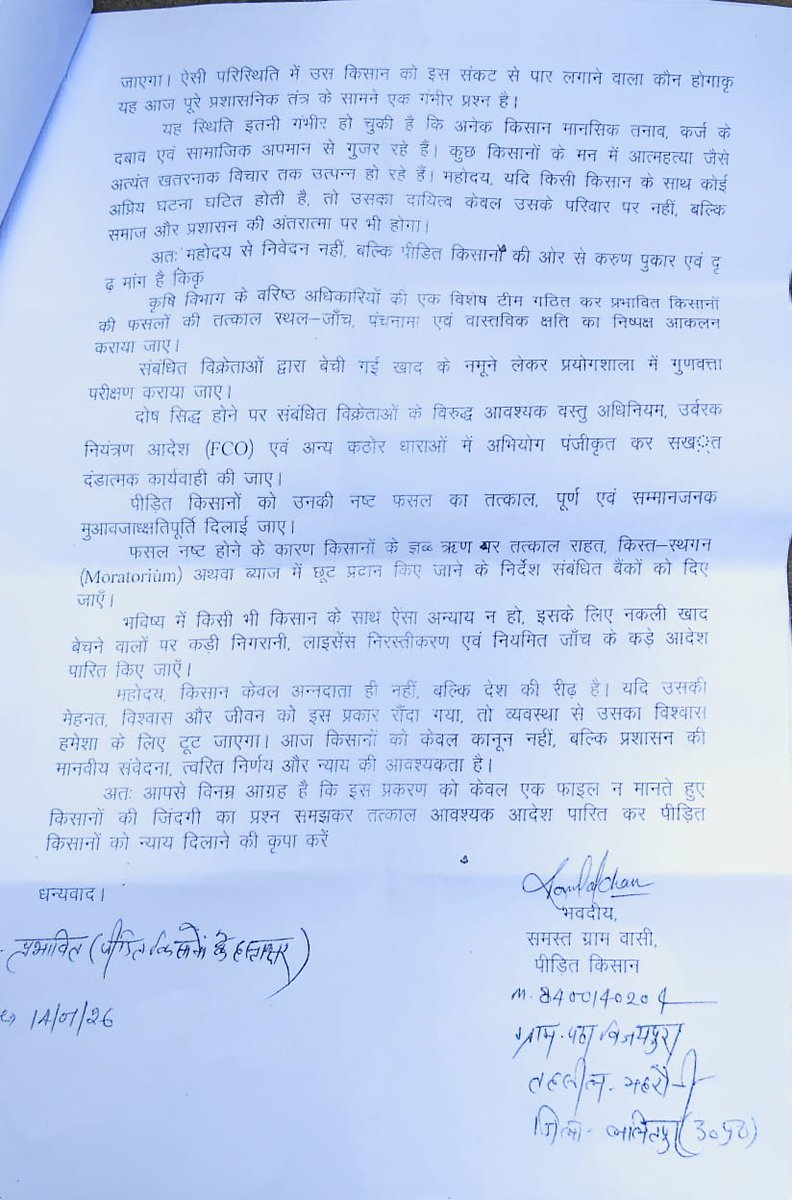 जाएगा। ऐसी परिस्थिति में उस किसान को इस संकट से पार लगाने वाला कौन होगाकृ
यह आज पूरे प्रशासनिक तंत्र के सामने एक गंभीर प्रश्न है।
यह स्थिति इतनी गंभीर हो चुकी है कि अनेक किसान मानसिक तनाव, कर्ज के
दबाव एवं सामाजिक अपमान से गुजर रहे हैं। कुछ किसानों के मन में आत्महत्या जैसे
अत्यंत खतरनाक विचार तक उत्पन्न हो रहे हैं। महोदय, यदि किसी किसान के साथ कोई
अप्रिय घटना घटित होती है, तो उसका दायित्व केवल उसके परिवार पर नहीं, बल्कि
समाज और प्रशासन की अंतरात्मा पर भी होगा।
अतः महोदय से निवेदन नहीं, बल्कि पीडित किसानों की ओर से करुण पुकार एवं दृ
ढ़ मांग है किकृ
कृषि विभाग के वरिष्ठ अधिकारियों की एक विशेष टीम गठित कर प्रभावित किसानों
की फसलों की तत्काल स्थल–जाँच, पंचनामा एवं वास्तविक क्षति का निष्पक्ष आकलन
कराया जाए।
संबंधित विक्रेताओं द्वारा बेची गई खाद के नमूने लेकर प्रयोगशाला में गुणवत्ता
परीक्षण कराया जाए।
दोष सिद्ध होने पर संबंधित विक्रेताओं के विरुद्ध आवश्यक वस्तु अधिनियम, उर्वरक
नियंत्रण आदेश (FCO) एवं अन्य कठोर धाराओं में अभियोग पंजीकृत कर सख़्त
दंडात्मक कार्यवाही की जाए।
पीड़ित किसानों को उनकी नष्ट फसल का तत्काल, पूर्ण एवं सम्मानजनक
मुआवजाध्क्षतिपूर्ति दिलाई जाए।
फसल नष्ट होने के कारण किसानों के ज्ञब्ब ऋण पर तत्काल राहत, किस्त–स्थगन
(Moratorium) अथवा ब्याज में छूट प्रदान किए जाने के निर्देश संबंधित बैंकों को दिए
जाएँ।
भविष्य में किसी भी किसान के साथ ऐसा अन्याय न हो, इसके लिए नकली खाद
बेचने वालों पर कड़ी निगरानी, लाइसेंस निरस्तीकरण एवं नियमित जाँच के कड़े आदेश
पारित किए जाएँ।
महोदय, किसान केवल अन्नदाता ही नहीं, बल्कि देश की रीढ़ है। यदि उसकी
मेहनत, विश्वास और जीवन को इस प्रकार रौंदा गया, तो व्यवस्था से उसका विश्वास
हमेशा के लिए टूट जाएगा। आज किसानों को केवल कानून नहीं, बल्कि प्रशासन की
मानवीय संवेदना, त्वरित निर्णय और न्याय की आवश्यकता है।
अतः आपसे विनम्र आग्रह है कि इस प्रकरण को केवल एक फाइल न मानते हुए
किसानों की जिंदगी का प्रश्न समझकर तत्काल आवश्यक आदेश पारित कर पीड़ित
किसानों को न्याय दिलाने की कृपा करें
धन्यवाद।
भवदीय,
समस्त ग्राम वासी,
पीडित किसान
प्रभावित (पीड़ित किसानों के हस्ताक्षर)
14/01/26
M. 840014020
ग्राम. पठा विजयपुरा
तहसील. महरौनी
जिला. ललितपुर (उ०प्र०)